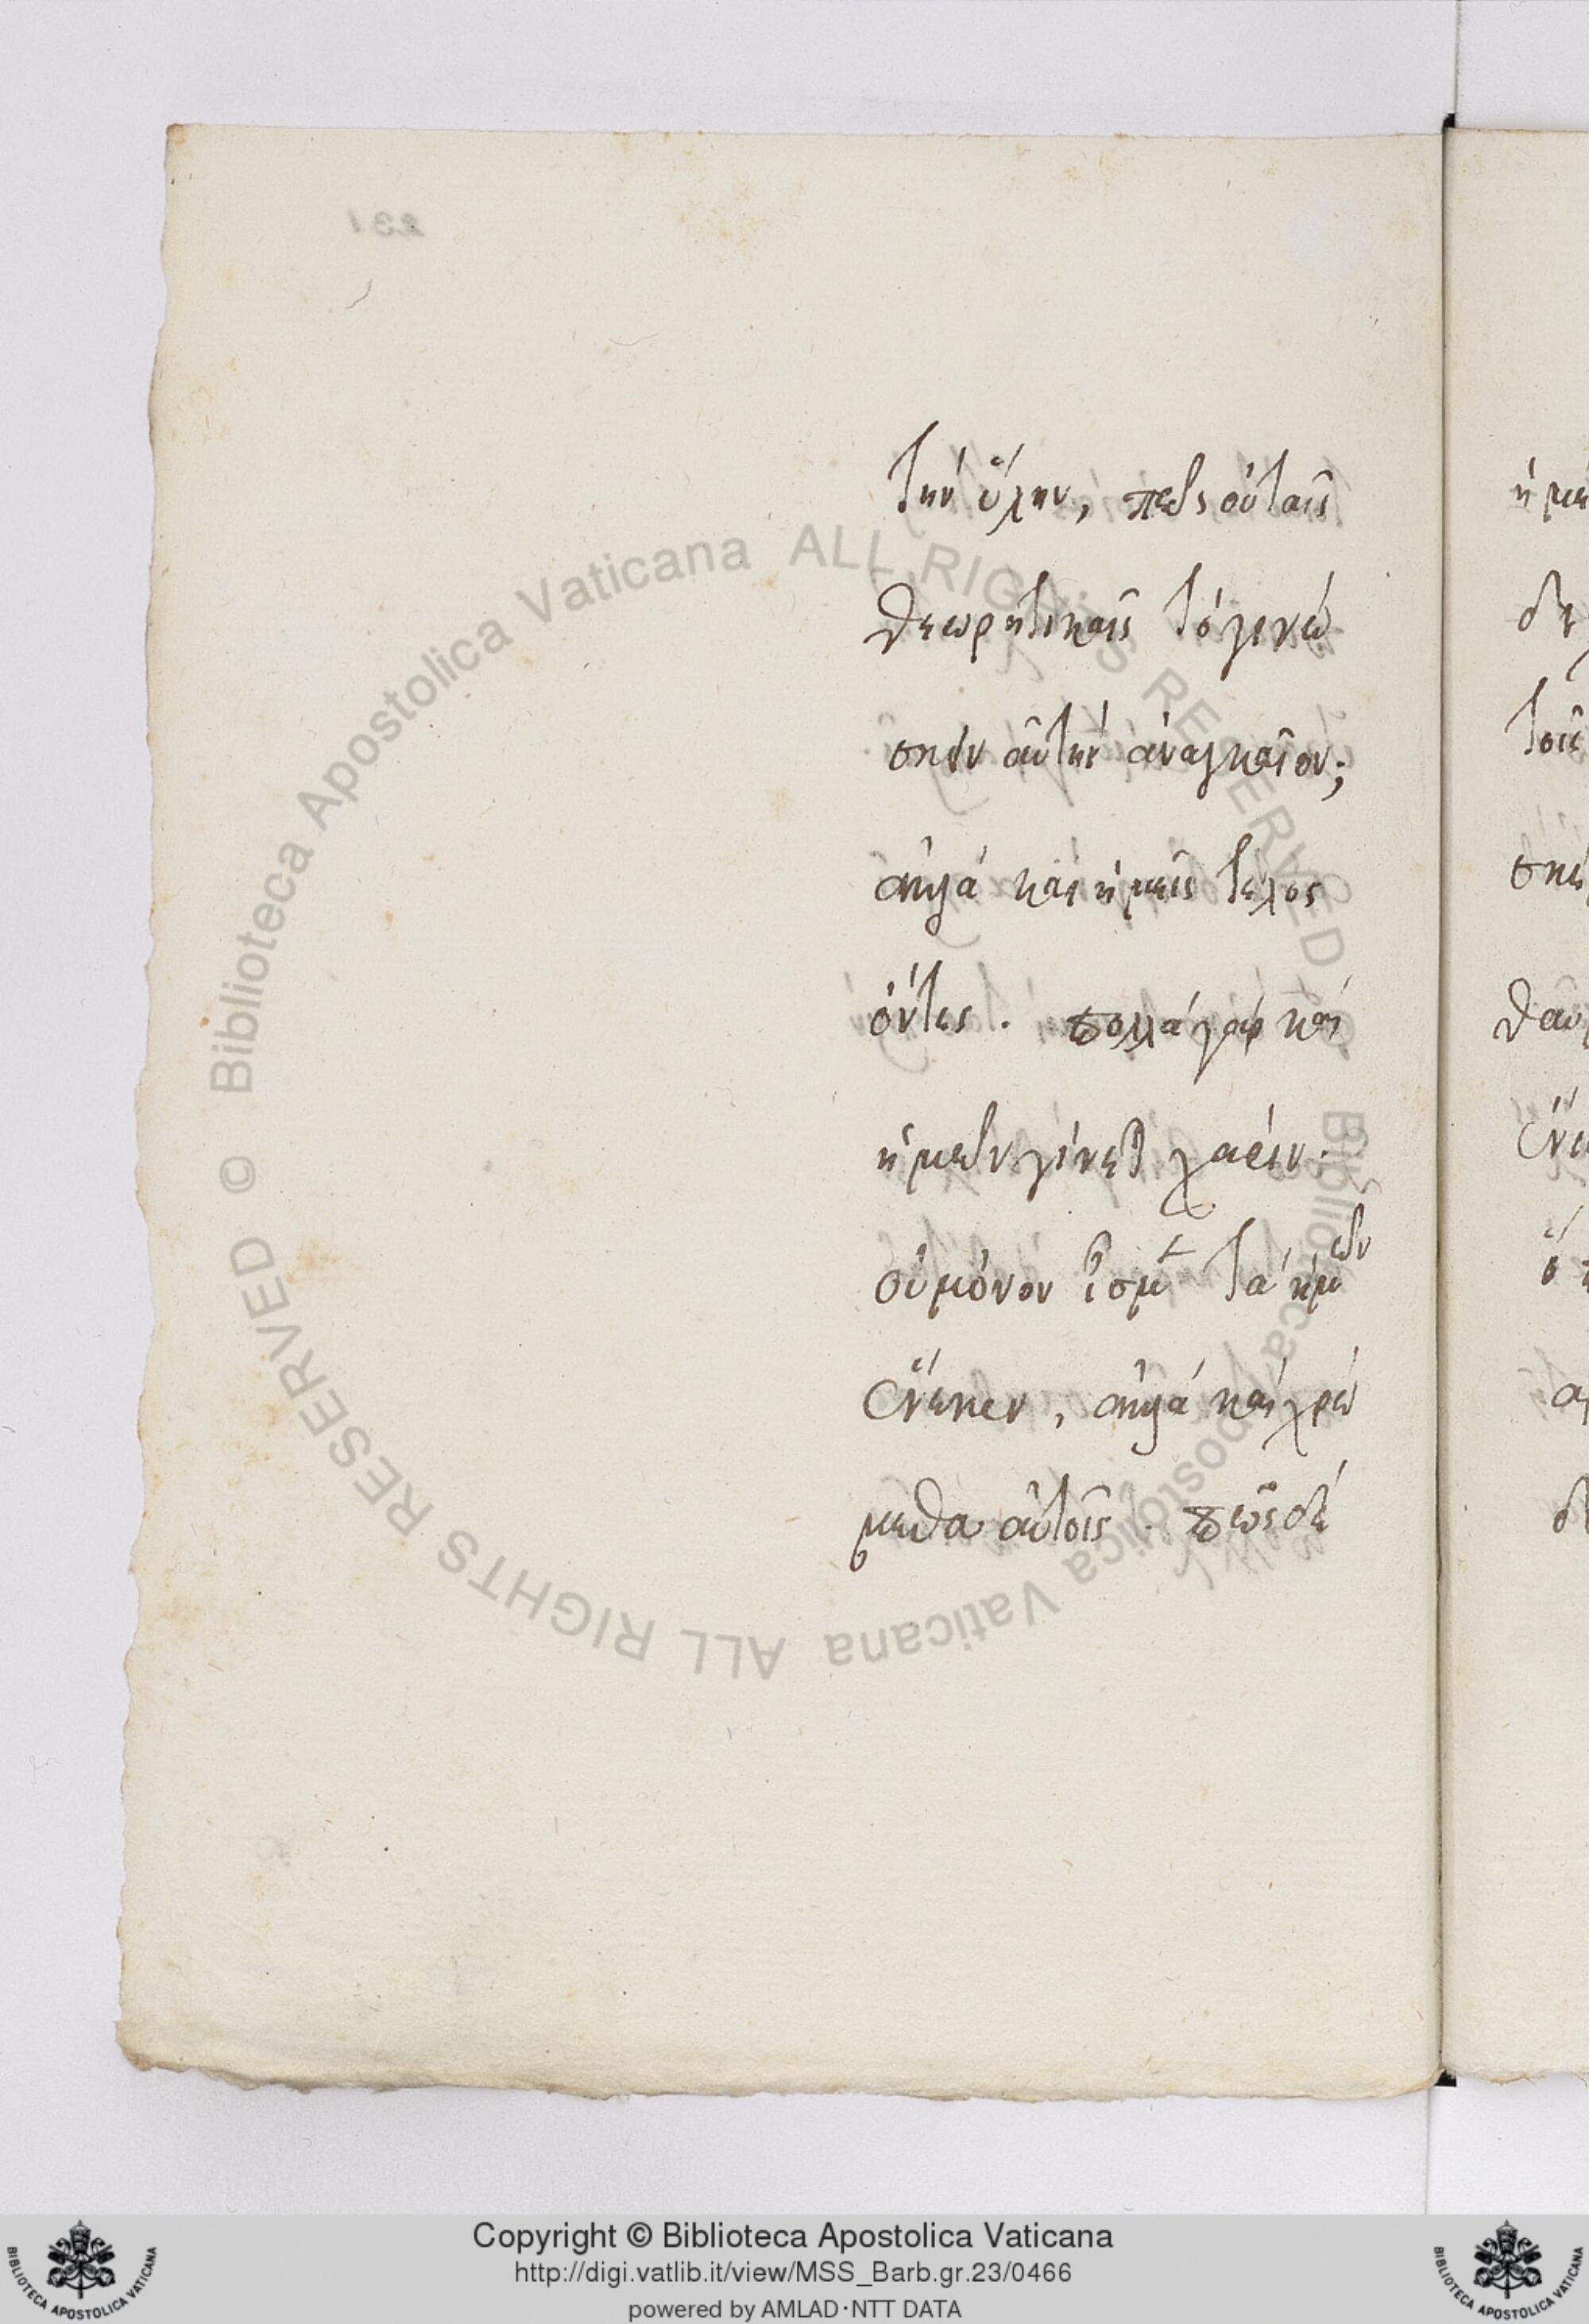 231
τὴν ὕλην, πῶς οὐ ταῖς
θεωρητικαῖς τὸ γινώ
σκειν αὐτὴν ἀναγκαῖον;
ἀλλὰ καὶ ἡμεῖς τέλος
ὄντες. πολλὰ γὰρ καὶ
ἡμῶν γίνεται χάριν.
οὐ μόνον τὰ ἡμῶν
ἕνεκεν, ἀλλὰ καὶ χρώ
μεθα αὐτοῖς. πῶς δὲ
© Biblioteca Apostolica Vaticana ALL RIGHTS RESERVED © Biblioteca Apostolica Vaticana ALL RIGHTS RESERVED
Copyright © Biblioteca Apostolica Vaticana
http://digi.vatlib.it/view/MSS_Barb.gr.23/0466
powered by AMLAD·NTT DATA
BIBLIOTECA APOSTOLICA VATICANA
BIBLIOTECA APOSTOLICA VATICANA